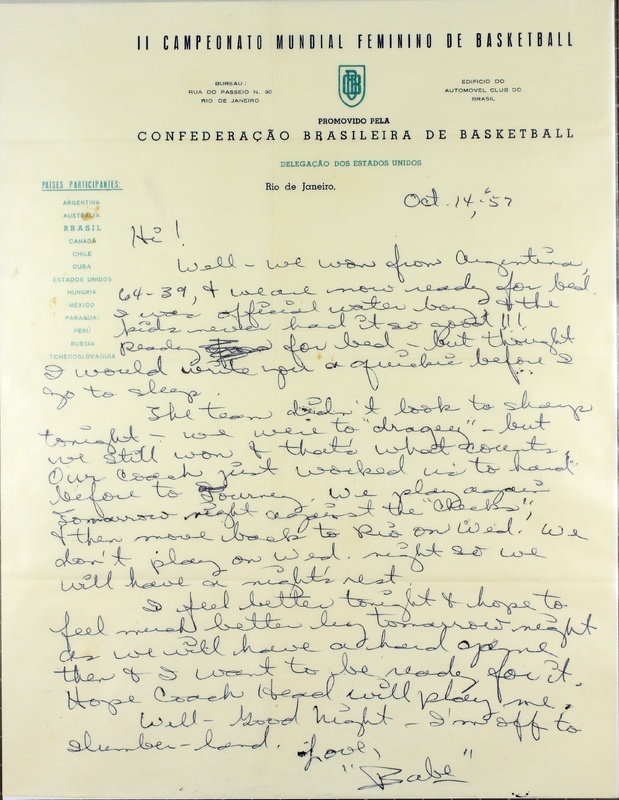 II CAMPEONATO MUNDIAL FEMININO DE BASKETBALL
BUREAU:
RUA DO PASSEIO N. 90
RIO DE JANEIRO
CBB
EDIFICIO DO
AUTOMOVEL CLUB DO
BRASIL
PROMOVIDO PELA
CONFEDERAÇÃO BRASILEIRA DE BASKETBALL
DELEGAÇÃO DOS ESTADOS UNIDOS
PAÍSES PARTICIPANTES:
ARGENTINA
AUSTRÁLIA
BRASIL
CANADÁ
CHILE
CUBA
ESTADOS UNIDOS
HUNGRIA
MÉXICO
PARAGUAI
PERÚ
RUSSIA
TCHECOSLOVAQUIA
Rio de Janeiro,
Oct. 14, '57
Hi!
Well - we won from Argentina,
64-39, & we are now ready for bed.
I was official water boy & the
kids never had it so good!!!
Ready for bed - but thought
I would write you a quickie before I
go to sleep.
The team didn't look to sharp
tonight - we were to "dragey" - but
we still won & that's what counts.
Our coach just worked us to hard
before to Journey. We play again
tomorrow night against the "Checks",
& then move back to Rio on Wed. We
don't play on Wed. night so we
will have a night's rest.
I feel better tonight & hope to
feel much better by tomorrow night
as we will have a hard game
then & I want to be ready for it.
Hope Coach Head will play me.
Well - Good Night - I'm off to
slumber-land.
Love,
"Babe"